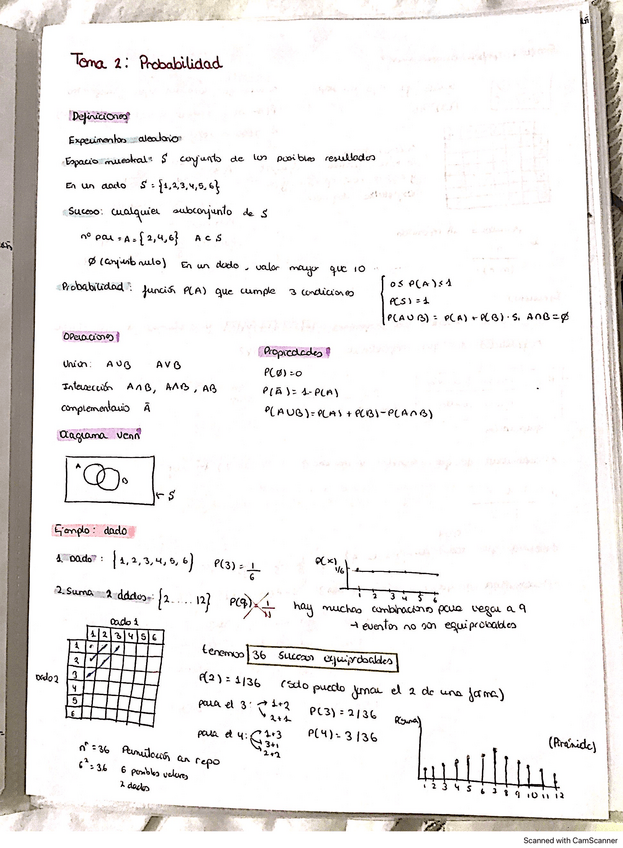 Tema 2: Probabilidad
Definiciones
Experimentos aleatorio
Espacio muestral: S conjunto de los posibles resultados
En un dado S = {1,2,3,4,5,6}
Suceso: cualquier subconjunto de S
nº par = A = {2,4,6} A ⊂ S
Ø (conjunto nulo) En un dado, valor mayor que 10
Probabilidad: función P(A) que cumple 3 condiciones
0 ≤ P(A) ≤ 1
P(S) = 1
P(A∪B) = P(A) + P(B) · si A∩B = Ø
Operaciones
Unión: A∪B A∨B
Intersección A∩B, A∧B, AB
complementario Ā
Propiedades
P(Ø) = 0
P(Ā) = 1 - P(A)
P(A∪B) = P(A) + P(B) - P(A∩B)
Diagrama Venn
A B S
Ejemplo: dado
1. Dado: {1, 2, 3, 4, 5, 6} P(3) = 1/6
P(x)
1/6
1 2 3 4 5 6
2. Suma 2 dados: {2....12} P(9) = 1/11 hay muchas combinaciones para llegar a 9
→ eventos no son equiprobables
Dado 1
1 2 3 4 5 6
Dado 2
1
2
3
4
5
6
tenemos 36 sucesos equiprobables
P(2) = 1/36 (solo puedo formar el 2 de una forma)
para el 3: 1+2
2+1
P(3) = 2/36
para el 4: 1+3
3+1
2+2
P(4) = 3/36
nº = 36 Permutación con repo
6² = 36 6 posibles valores
2 dados
P(suma)
(Pirámide)
1 2 3 4 5 6 7 8 9 10 11 12
Scanned with CamScanner